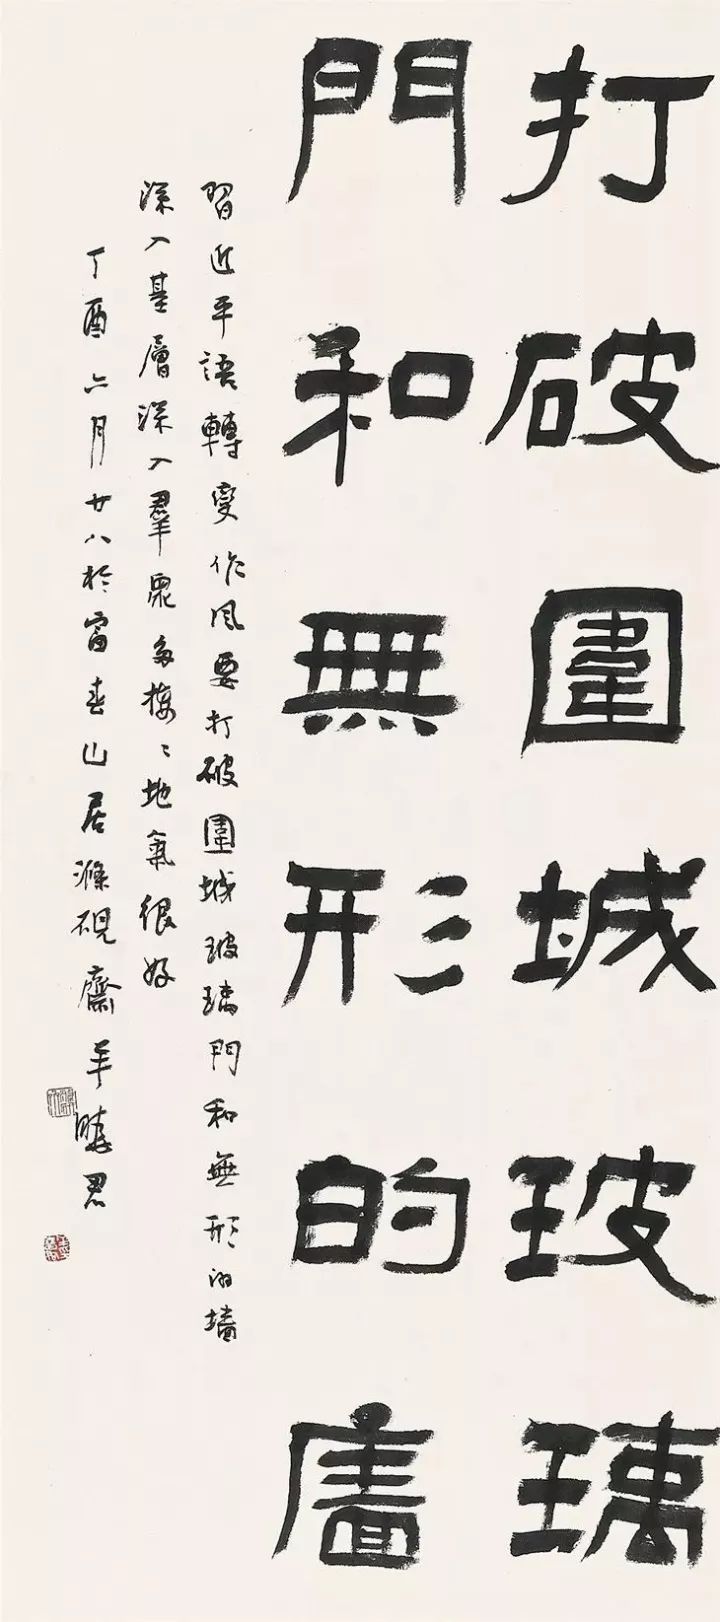 打破圍城玻璃
門和無形的廧
習近平語轉變作風要打破圍城玻璃門和無形的墻
深入基層深入羣眾多接接地氣很好
丁酉六月廿八於富春山居滌硯齋羊曉君